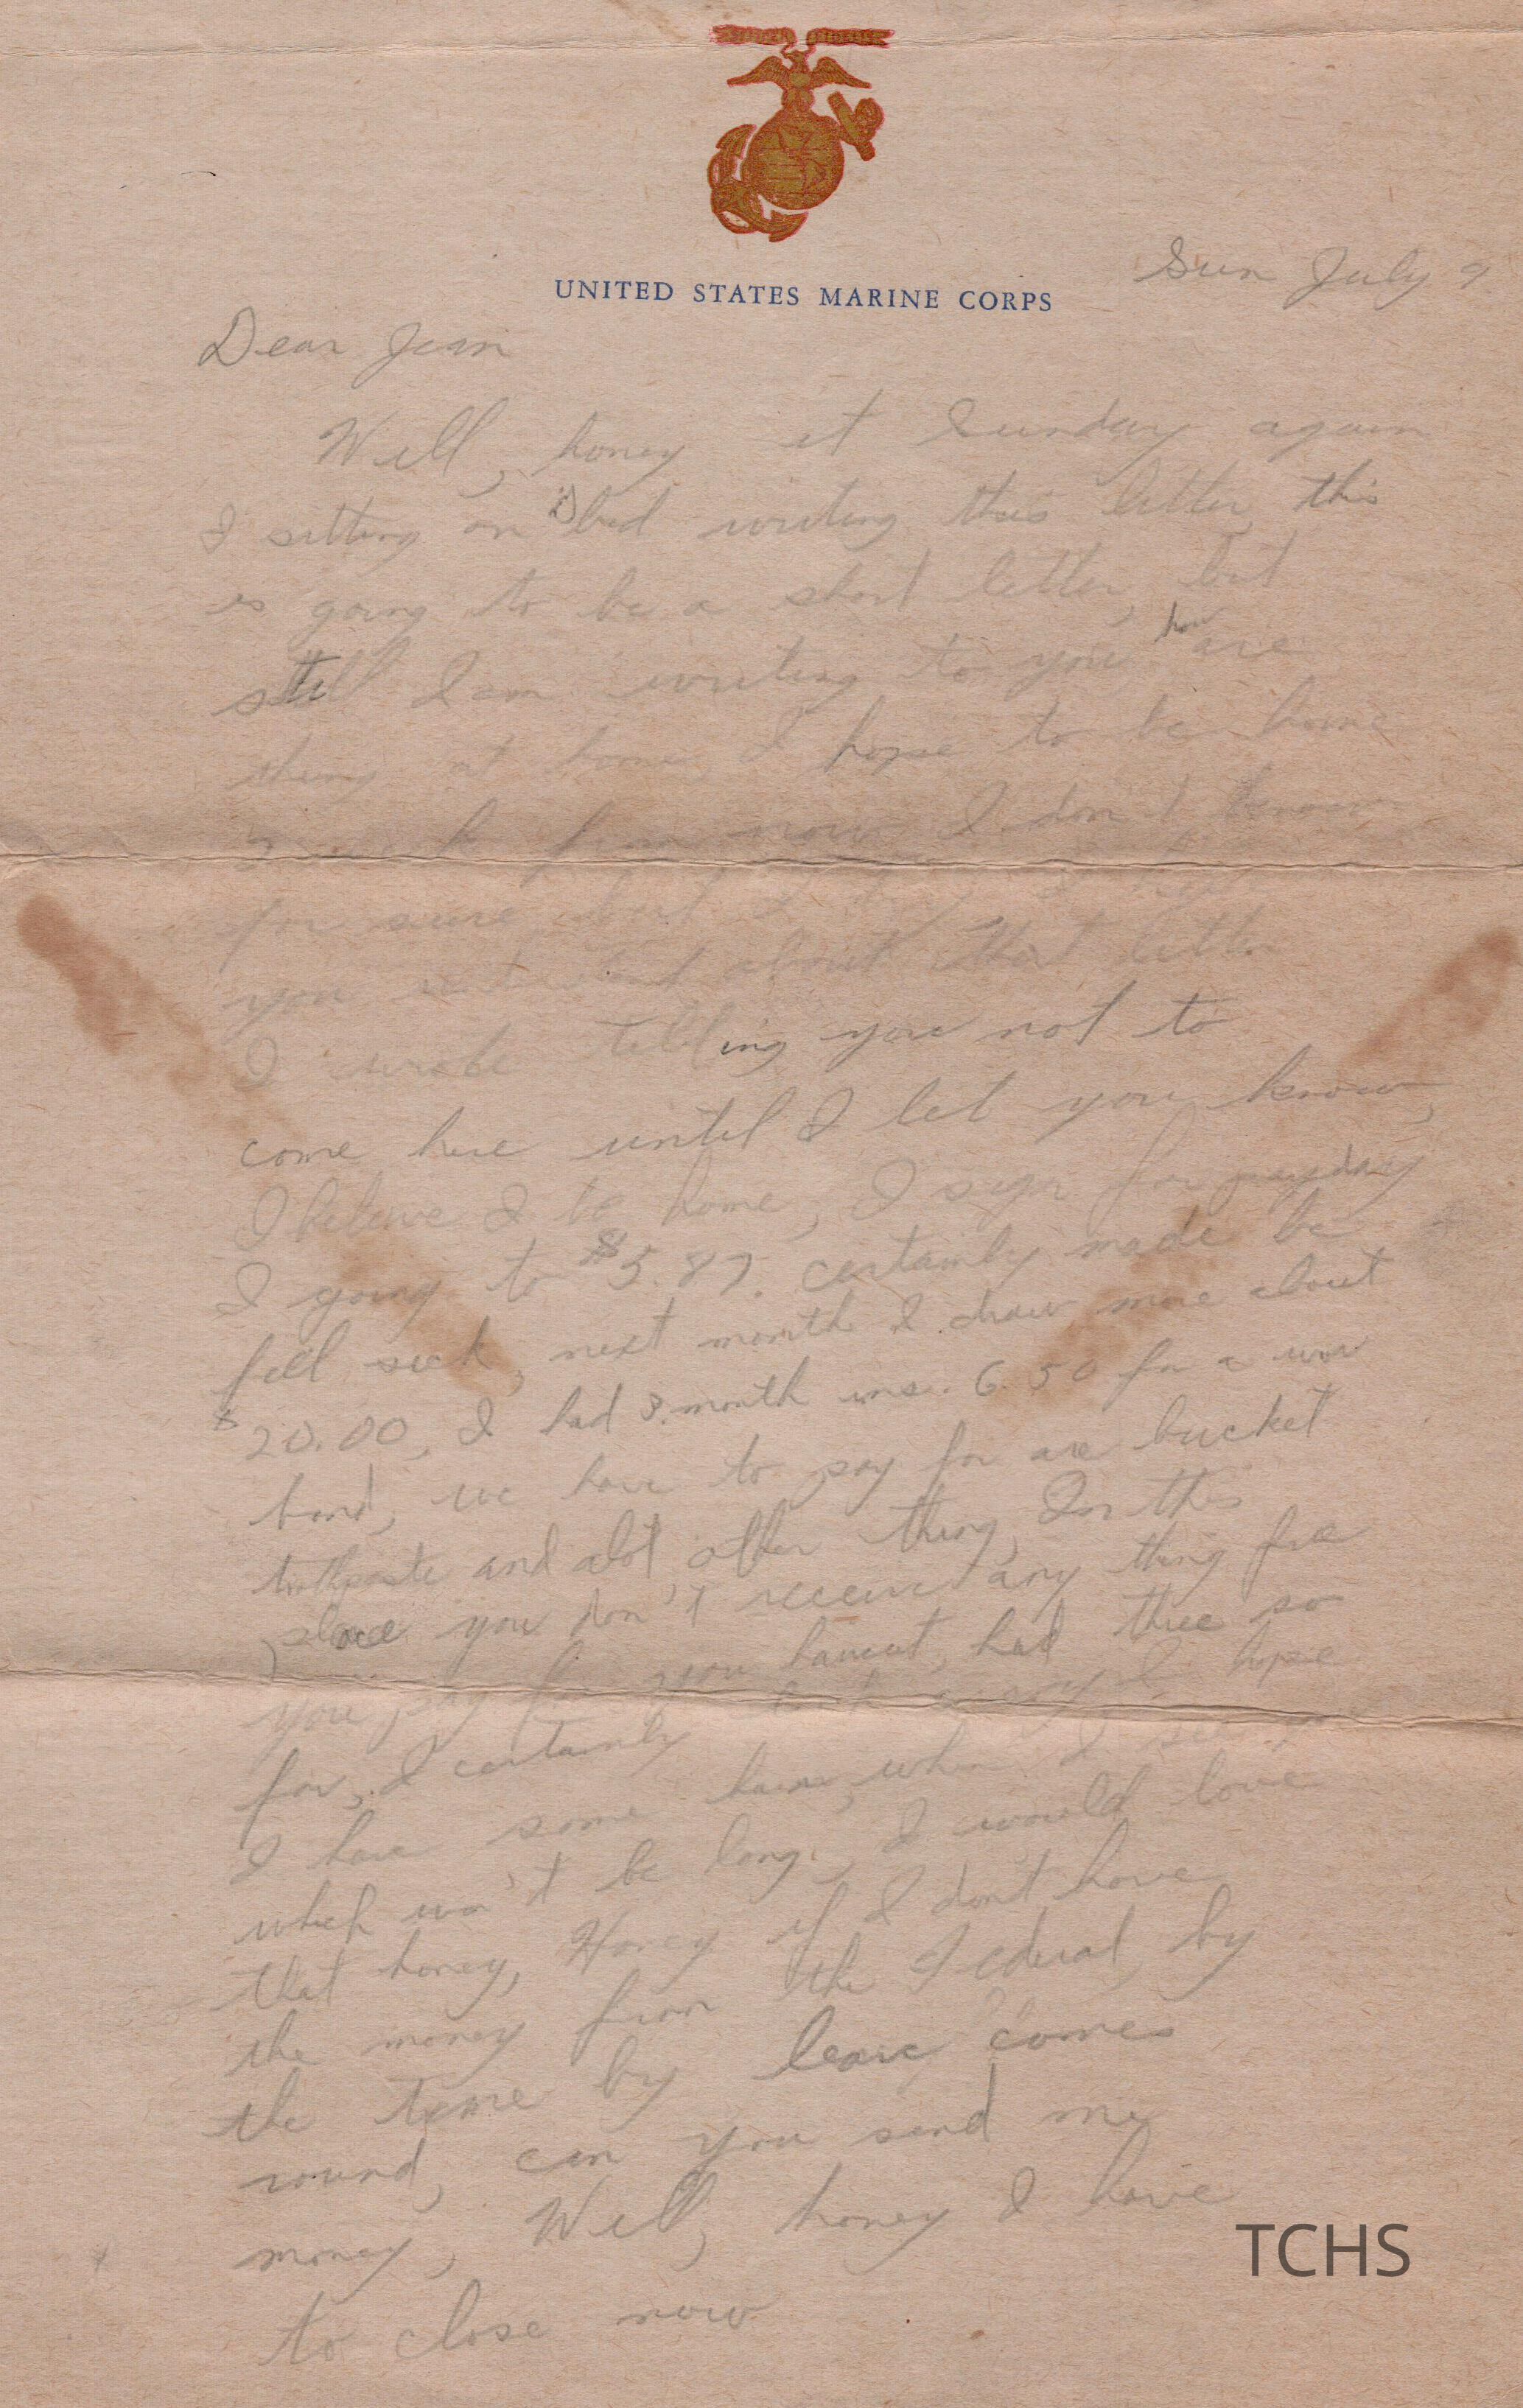 UNITED STATES MARINE CORPS
Sun July 9
Dear Jean
Well, honey it Sunday again
I sitting on bed writing this letter, this
is going to be a short letter, but
still I am writing to you how are
thing at home, I hope to be home
from now I don't know
for sure, but I
you about that letter
I wrote telling you not to
come here until I let you know,
I beleive I be home, I sign for payday
I going to $5.87. certainly made be
fell sick, next month I draw more about
$20.00, I had 3 month ins. 6.50 for a war
bond, we have to pay for are bucket
toothpaste and alot other thing, In this
place you don't receive any thing free
you pay for you haircut, had three so
far, I certainly I hope
I have some hair, when I see you
which won't be long, I would love
that honey, Honey if I don't have
the money from the Federal by
the time by leave comes
round, can you send me
money, Well, honey I have
to close now
TCHS